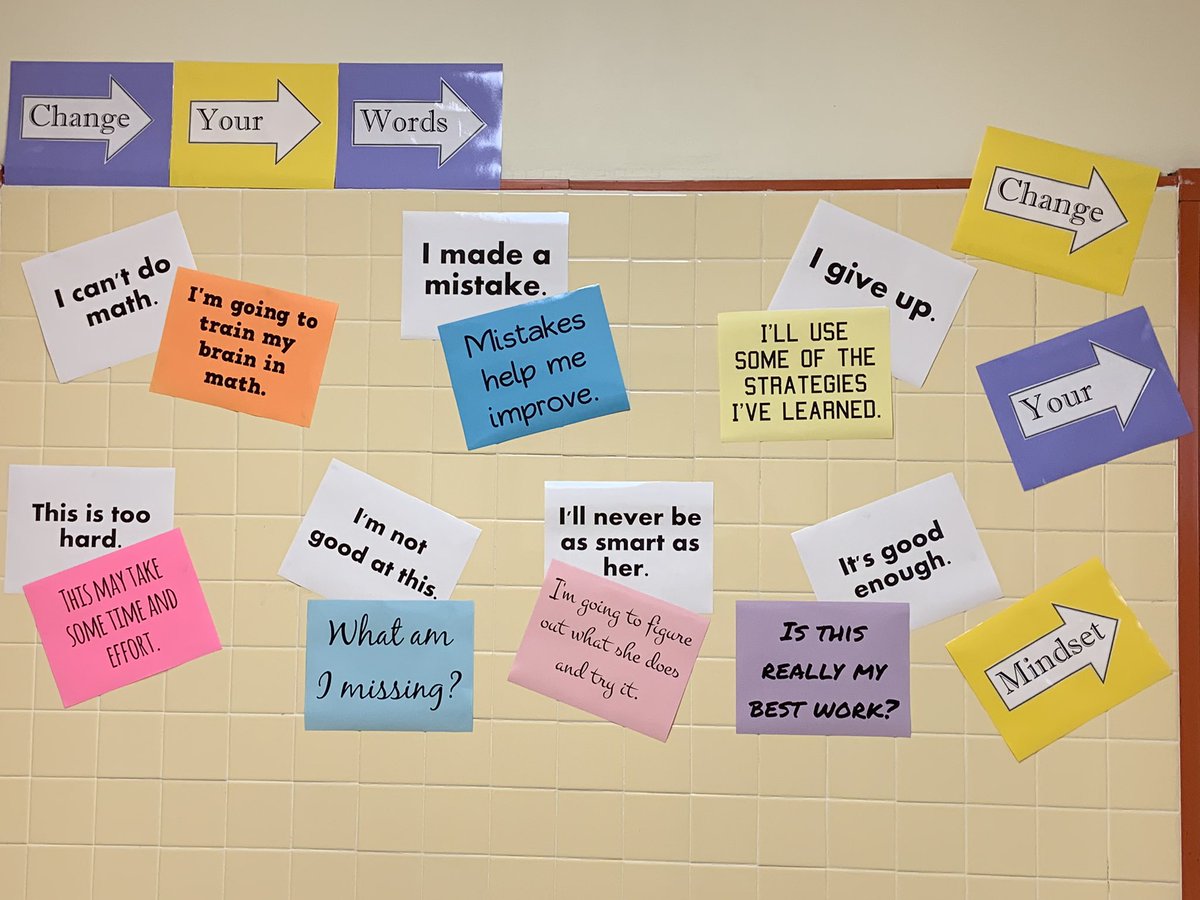 Change Your Words
I can't do
math.
I'm going to
train my
brain in
math.
I made a
mistake.
Mistakes
help me
improve.
I give up.
I'LL USE
SOME OF THE
STRATEGIES
I'VE LEARNED.
This is too
hard.
THIS MAY TAKE
SOME TIME AND
EFFORT.
I'm not
good at this.
What am
I missing?
I'll never be
as smart as
her.
I'm going to figure
out what she does
and try it.
It's good
enough.
IS THIS
REALLY MY
BEST WORK?
Change
Your
Mindset